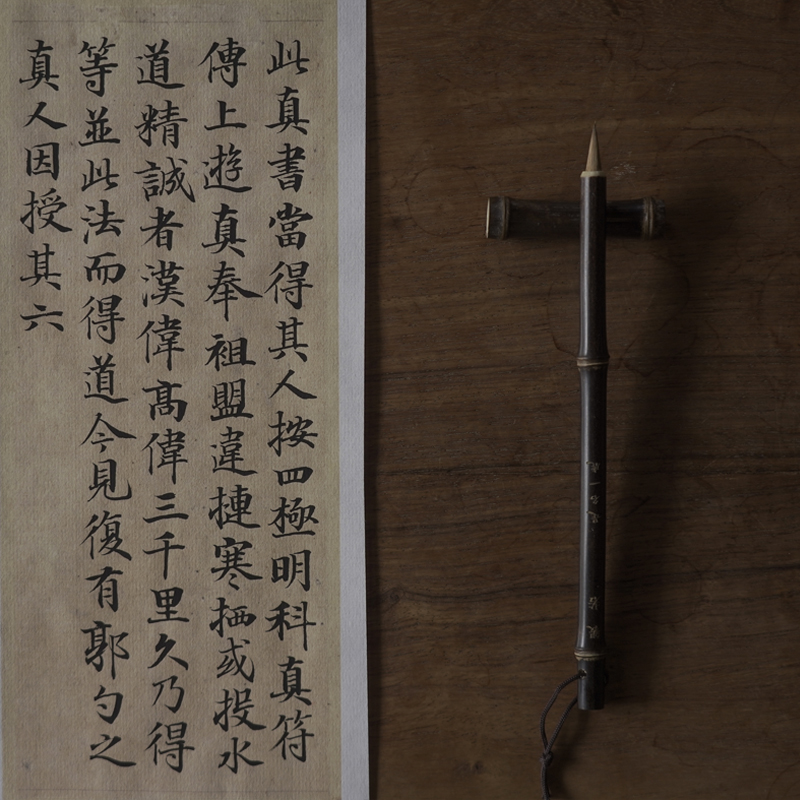 此真書當得其人按四極明科真符
傳上遊真奉祖盟違揵寒栖或投水
道精誠者漢偉高偉三千里久乃得
等並此法而得道今見復有郭勺之
真人因授其六